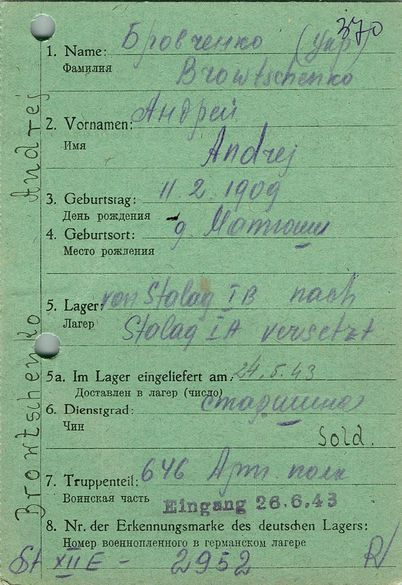 370
Бровченко (Укр)
1. Name: Browtschenko
Фамилия
Андрей
2. Vornamen:
Имя
Andrej
3. Geburtstag: 11 2 1909
День рождения
4. Geburtsort: д. Матюши
Место рождения
5. Lager: von Stalag IB nach
Лагер Stalag IA versetzt
5a. Im Lager eingeliefert am 24.5.43
Доставлен в лагер (число)
6. Dienstgrad: старшина
Чин
Sold.
7. Truppenteil: 646 Арт. полк
Воинская часть
Eingang 26.6.43
8. Nr. der Erkennungsmarke des deutschen Lagers:
Номер военнопленного в германском лагере
St XII E - 2952
Browtschenko Andrej